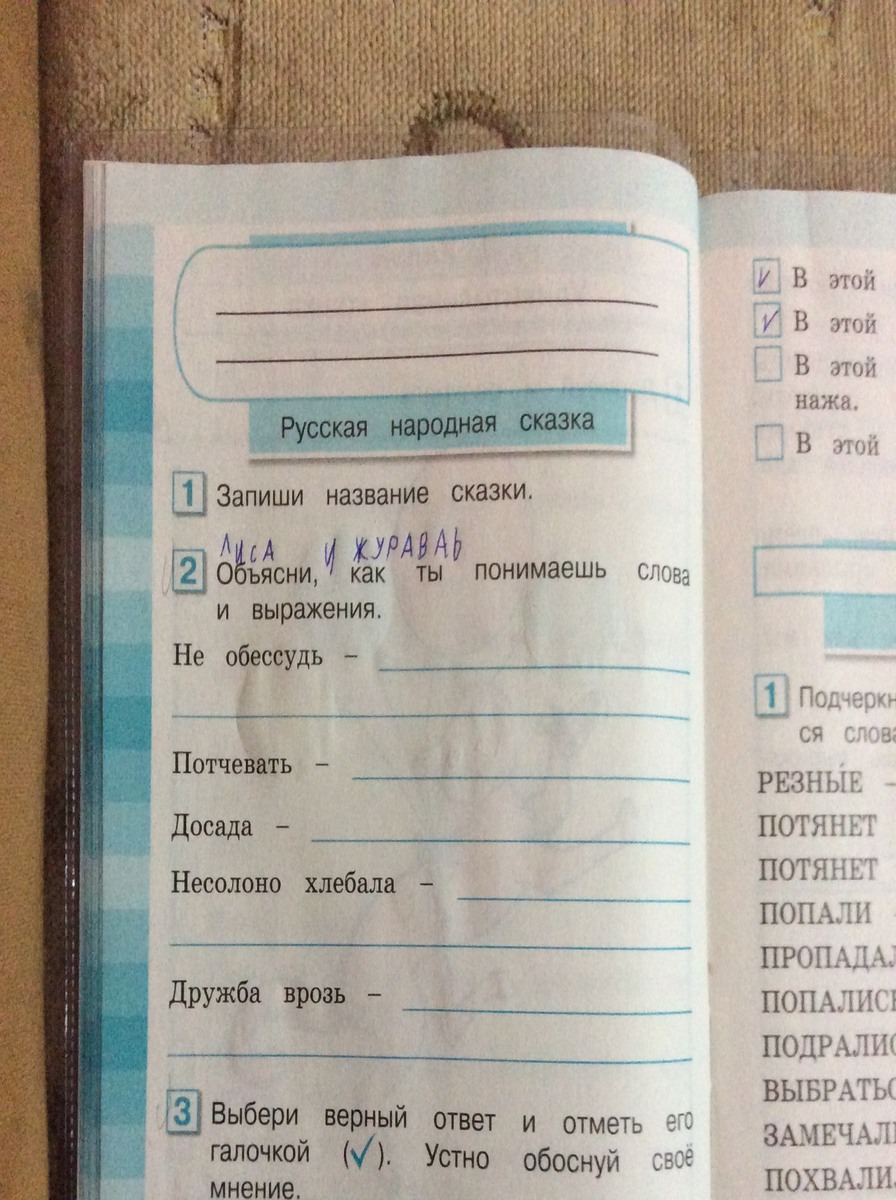 Русская народная сказка
1 Запиши название сказки.
Лиса и журавль
2 Объясни, как ты понимаешь слова
и выражения.
Не обессудь –
Потчевать –
Досада –
Несолоно хлебала –
Дружба врозь –
3 Выбери верный ответ и отметь его
галочкой (✓). Устно обоснуй своё
мнение.
✓ В этой
✓ В этой
В этой
нажа.
В этой
1 Подчеркн
ся слова
РЕЗНЫ́Е –
ПОТЯНЕТ
ПОТЯНЕТ
ПОПАЛИ
ПРОПАДАЛ
ПОПАЛИСЬ
ПОДРАЛИС
ВЫБРАТЬС
ЗАМЕЧАЛИ
ПОХВАЛИ